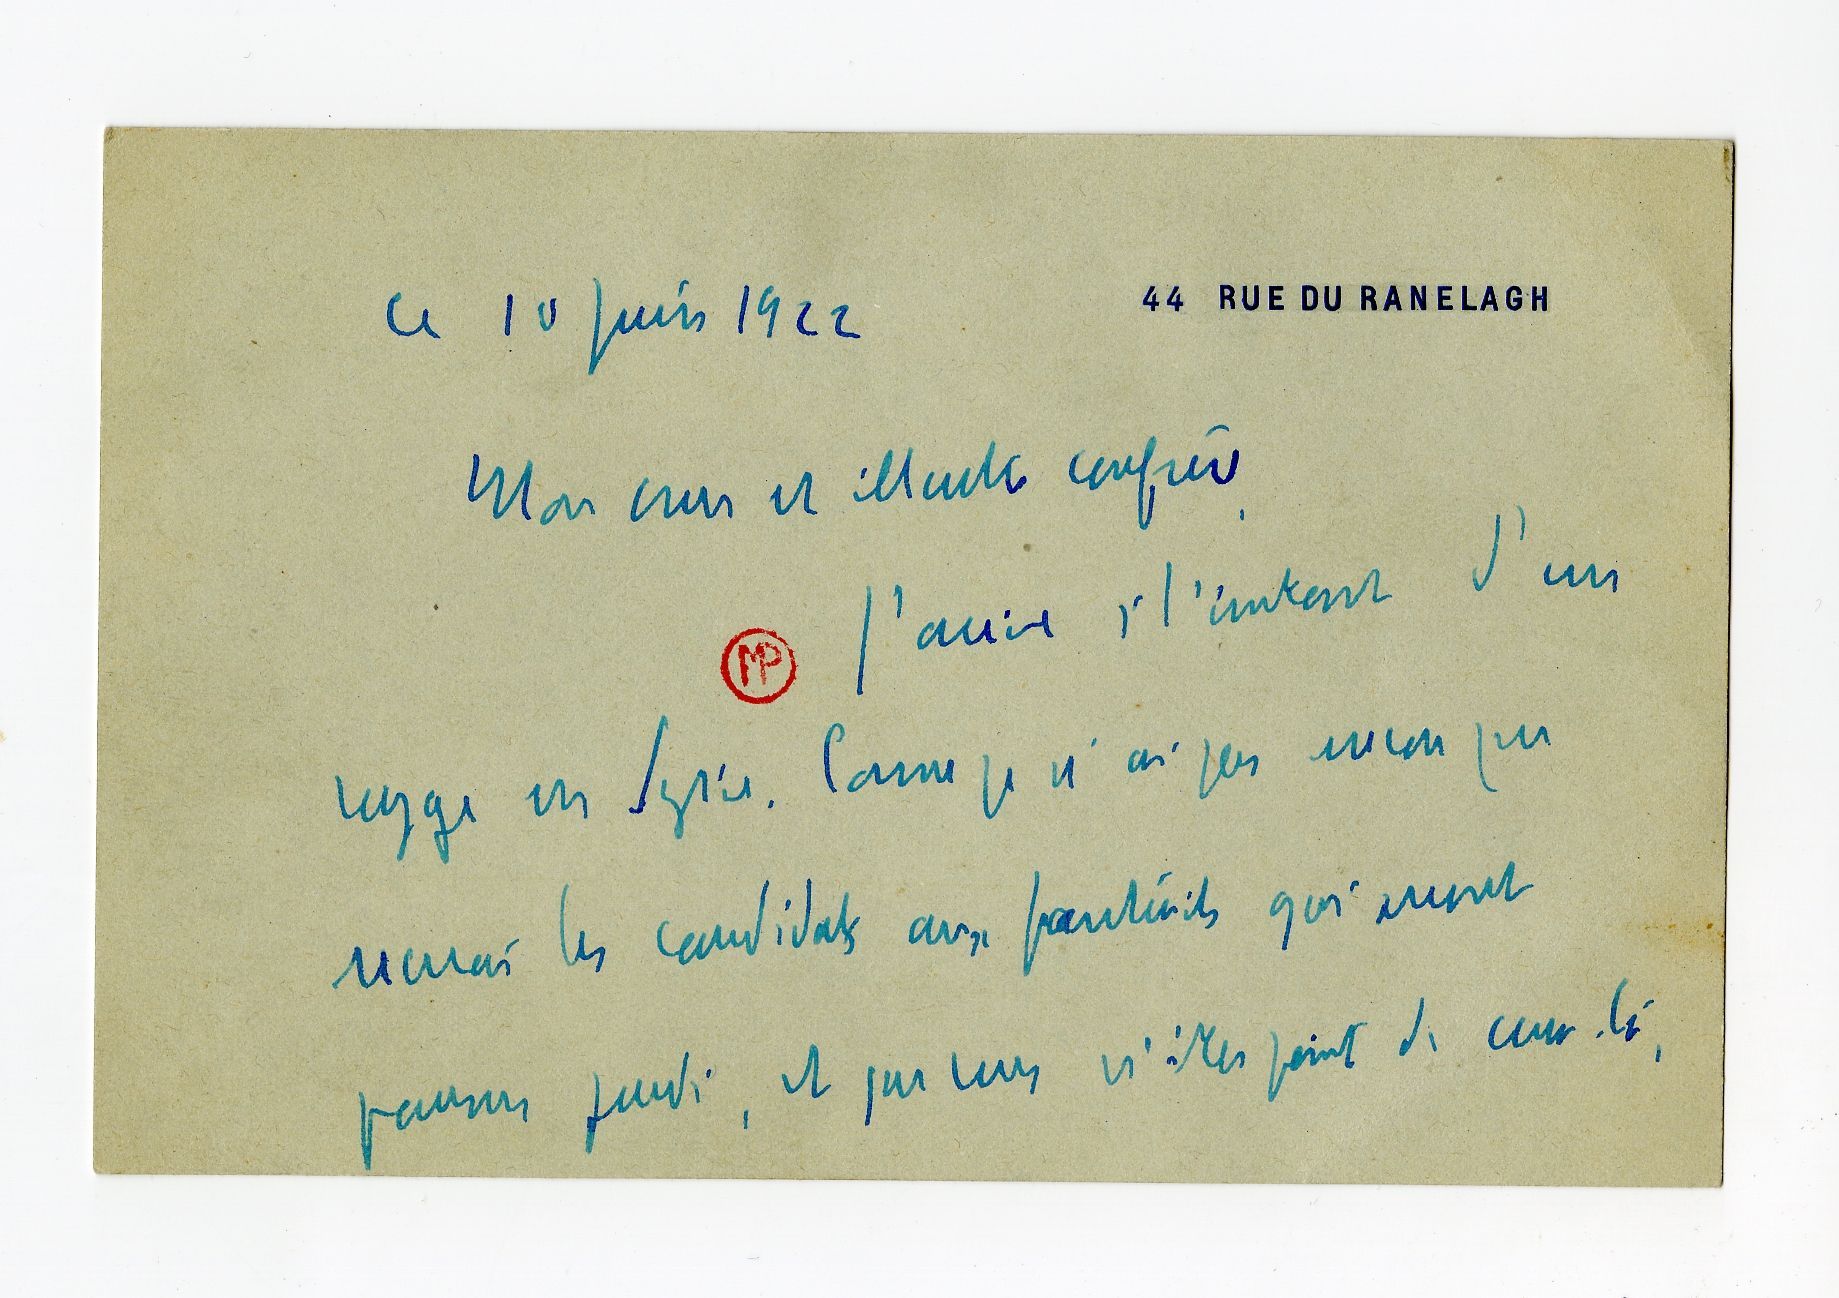 44 RUE DU RANELAGH
ce 10 juin 1922
Mon cher et illustre confrère,
MP
J'arrive à l'instant d'un
voyage en Syrie. Comme je n'ai pas encore pu
recevoir les candidats aux fauteuils qui seront
pourvus jeudi, et que vous n'êtes point de ceux-là,